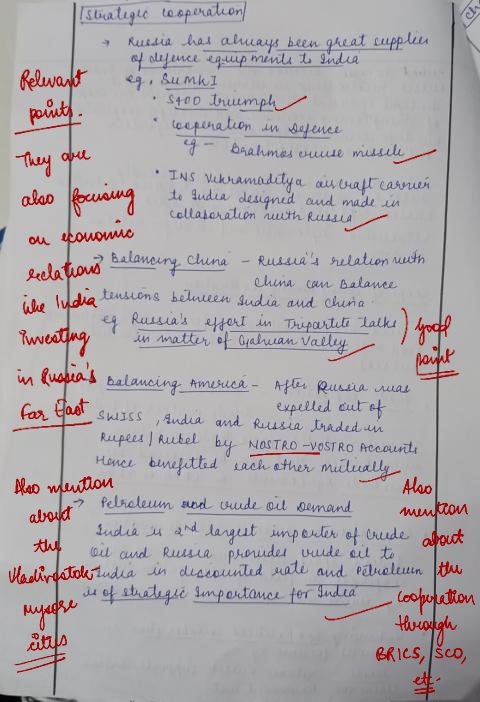 Strategic cooperation
→ Russia has always been great supplier
of defence equipments to India
eg. SUMKI
• S400 Triumph
• cooperation in Defence
eg - Brahmos cruise missile
• INS Vikramaditya aircraft carrier
to India designed and made in
collaboration with Russia
→ Balancing China - Russia's relation with
China can Balance
tensions between India and China.
eg Russia's effort in Tripartite talks
in matter of Galwan Valley
Balancing America - After Russia was
expelled out of
SWISS, India and Russia traded in
Rupees/Rubel by NOSTRO-VOSTRO Accounts
Hence benefitted each other mutually
→ Petroleum and crude oil Demand
India is 2nd largest importer of crude
oil and Russia provides crude oil to
India in discounted rate and Petroleum
is of strategic Importance for India
Relevant
points.
They are
also focusing
on economic
relations
like India
investing
in Russia's
Far East
Also mention
about
the
Vladivostok-
Mysore
cities
Good
point
Also
mention
about
the
cooperation
through
BRICS, SCO,
etc.